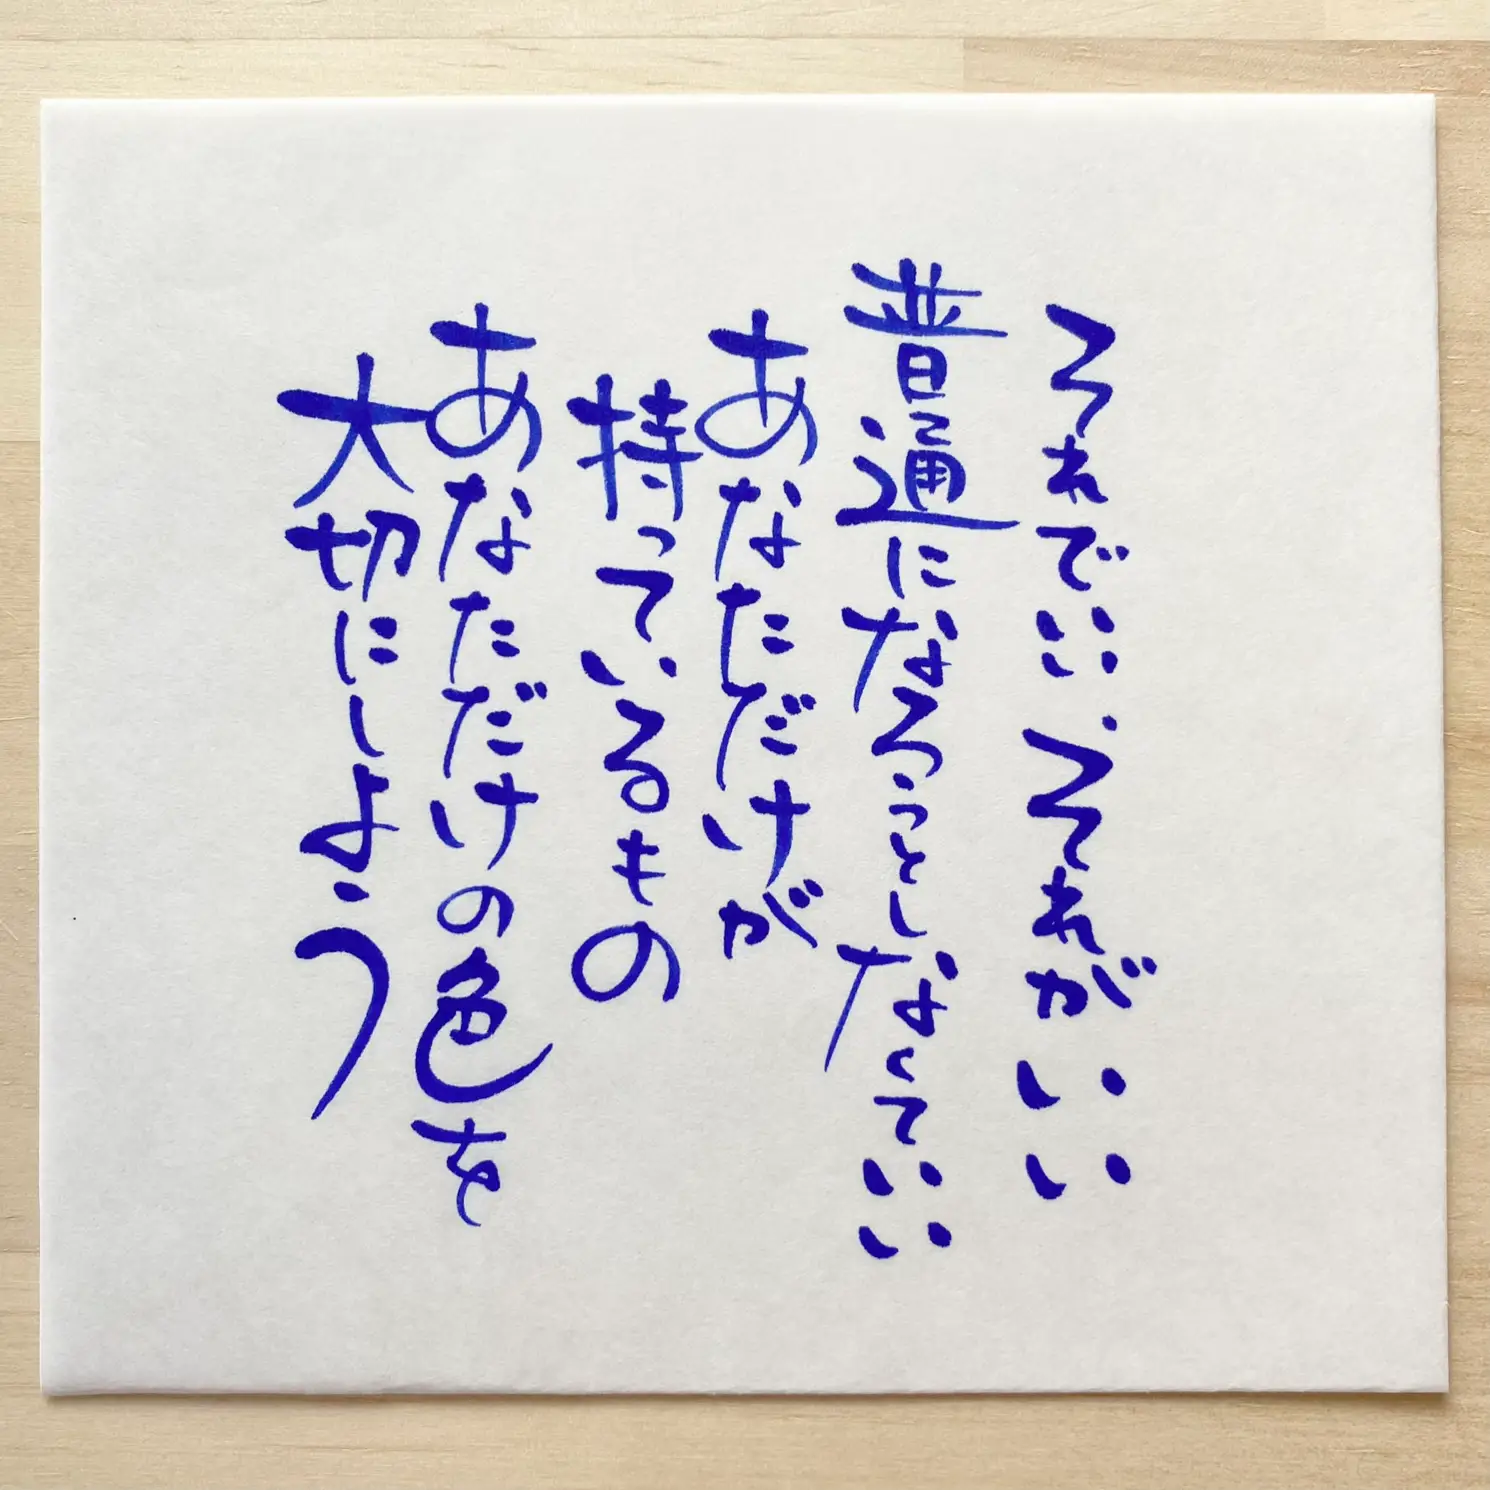 それでいい.それがいい
普通になろうとしなくていい
あなただけが
持っているもの
あなただけの色を
大切にしよう